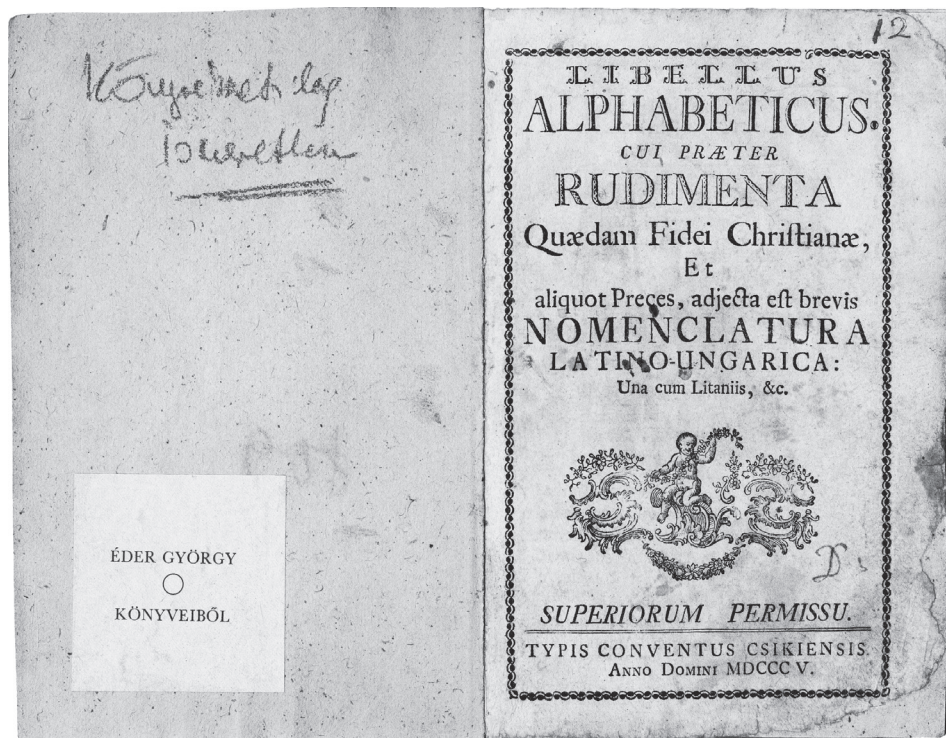 Könyvészetileg
Ismeretlen
ÉDER GYÖRGY
KÖNYVEIBŐL
12
LIBELLUS
ALPHABETICUS.
CUI PRÆTER
RUDIMENTA
Quædam Fidei Chriſtianæ,
Et
aliquot Preces, adjecta eſt brevis
NOMENCLATURA
LATINO-UNGARICA:
Una cum Litaniis, &c.
SUPERIORUM PERMISSU.
TYPIS CONVENTUS CSIKIENSIS.
ANNO DOMINI MDCCC V.